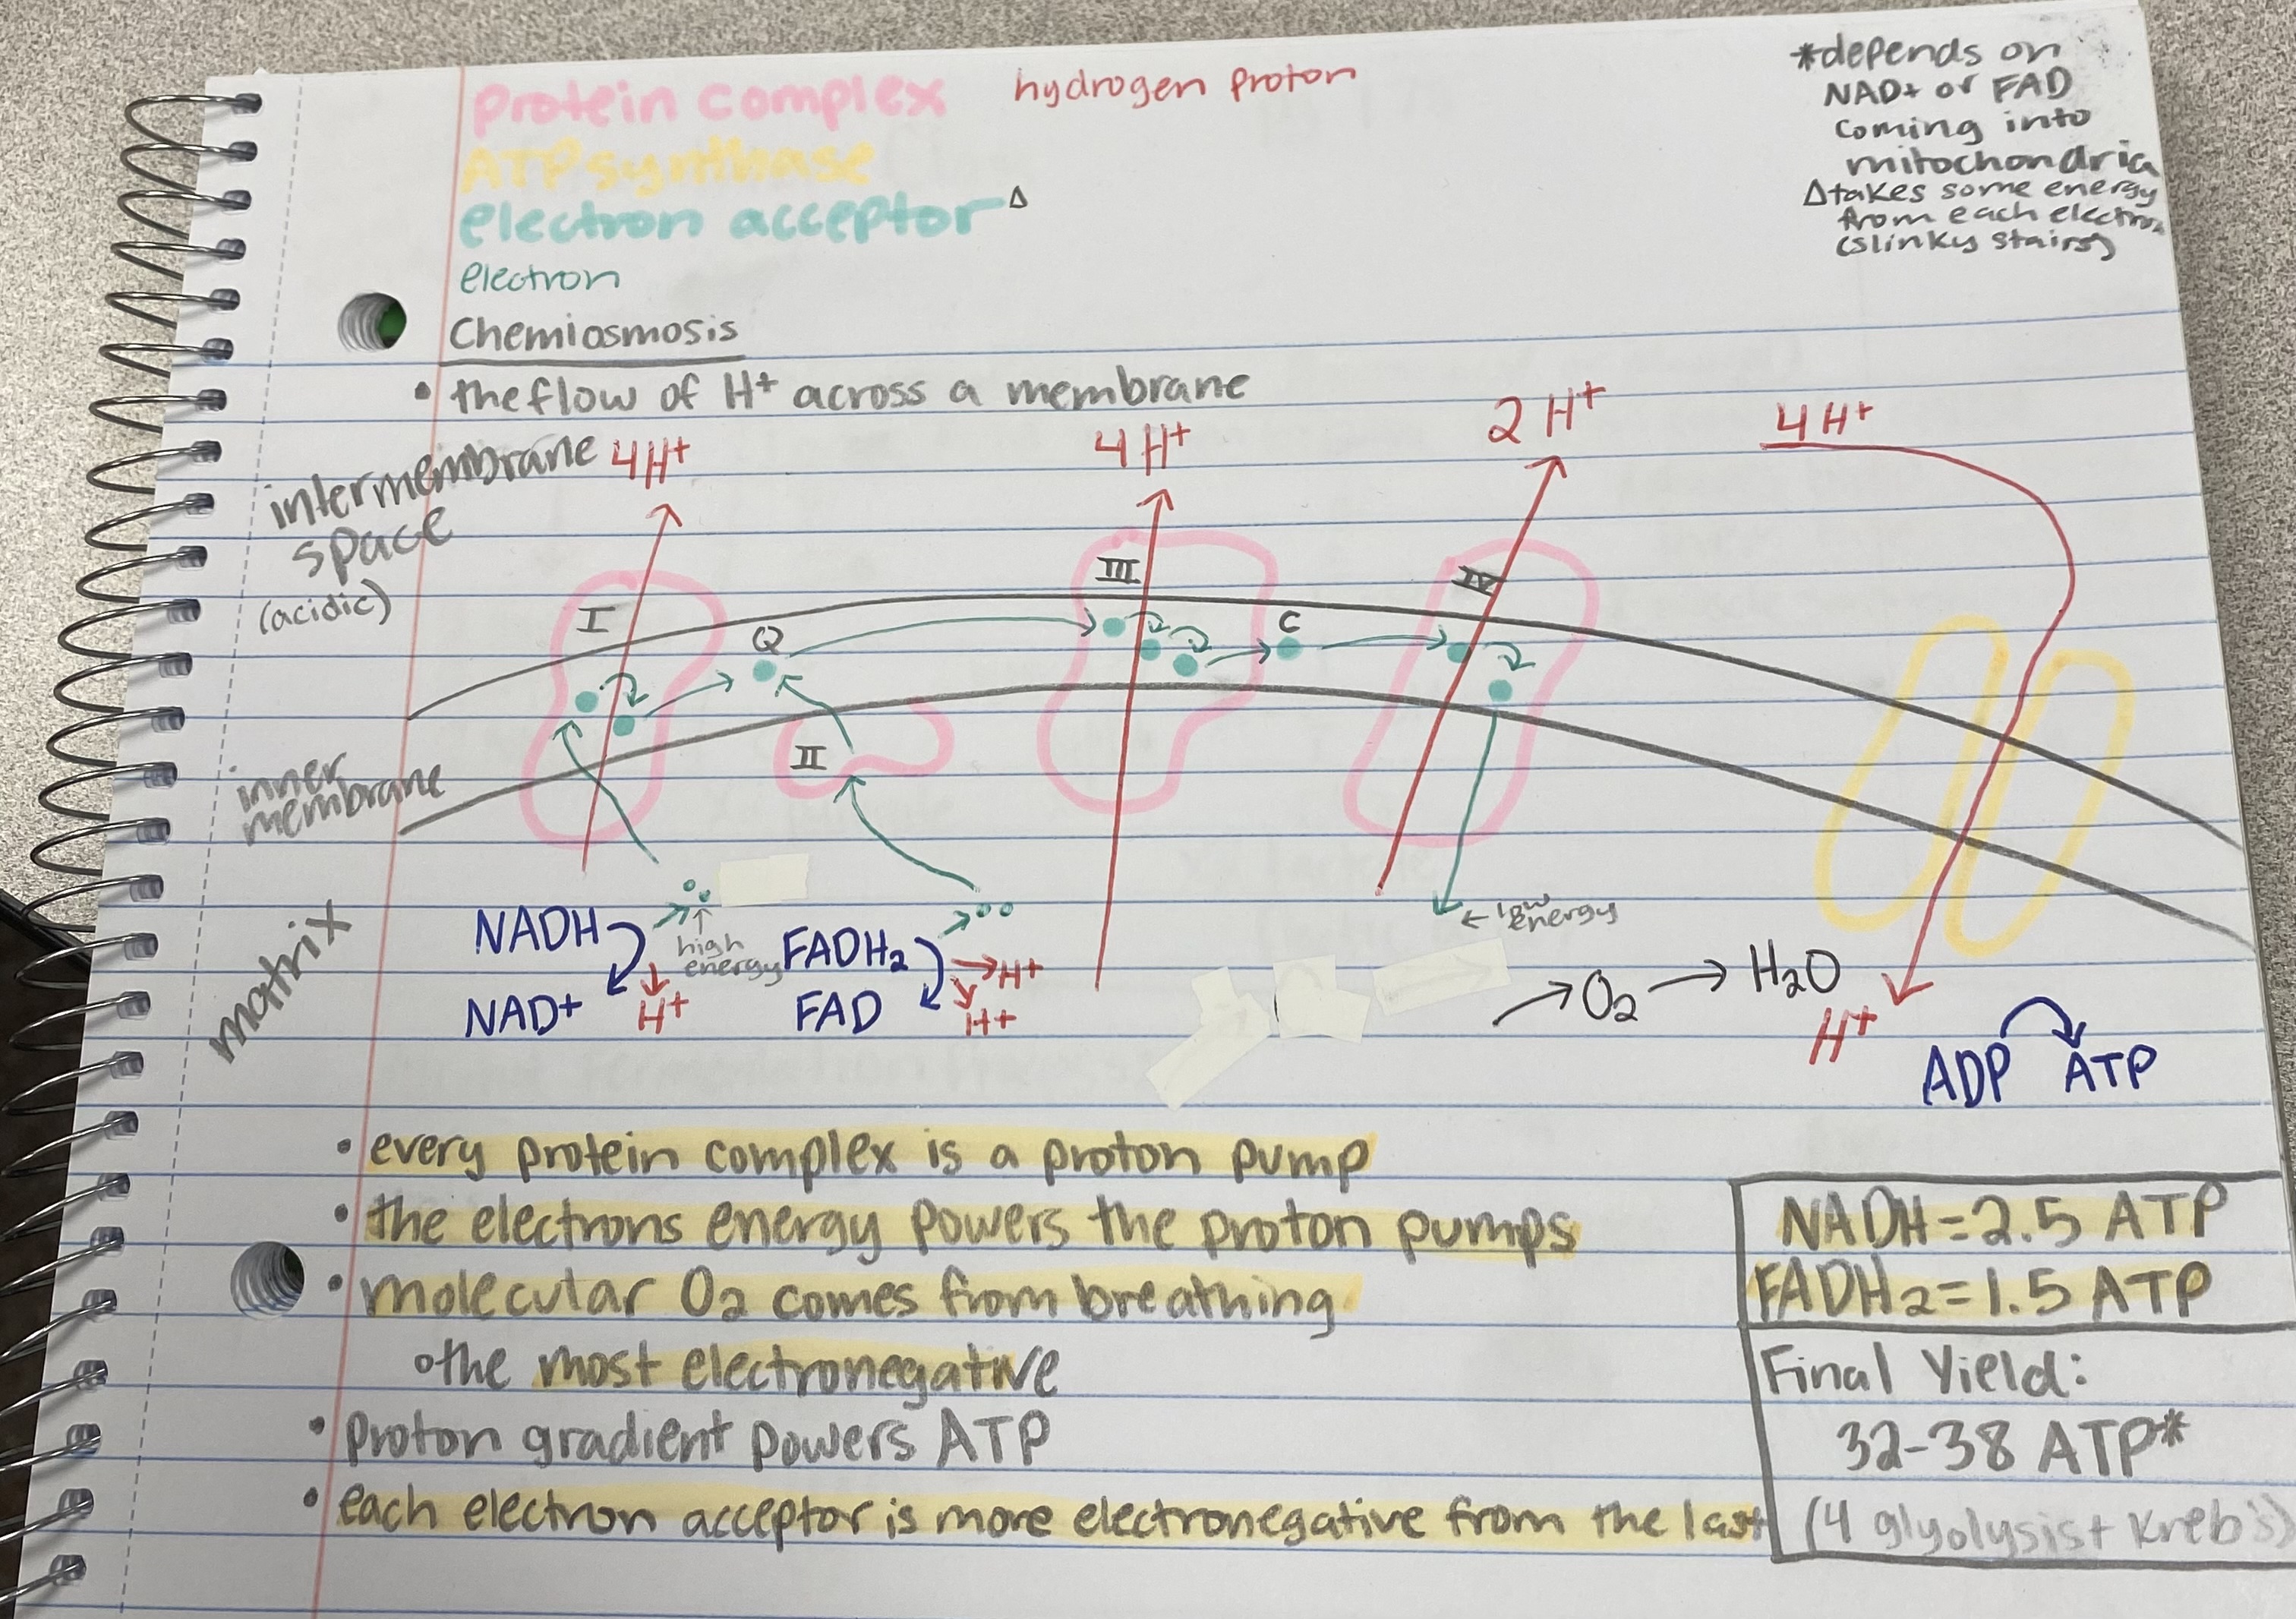 protein complex
hydrogen proton
ATP synthase
electron acceptor Δ
electron
*depends on
NAD+ or FAD
coming into
mitochondria
Δtakes some energy
from each electron
(slinky stairs)
Chemiosmosis
• the flow of H+ across a membrane
intermembrane
space
(acidic)
4H+
4 H+
2 H+
4 H+
I
Q
III
C
IV
II
inner
membrane
matrix
NADH
high
energy
NAD+
H+
FADH2
H+
FAD
H+
← low
energy
O2
H2O
H+
ADP
ATP
• every protein complex is a proton pump
• the electrons energy powers the proton pumps
• molecular O2 comes from breathing
◦the most electronegative
• Proton gradient powers ATP
• each electron acceptor is more electronegative from the last
NADH=2.5 ATP
FADH2=1.5 ATP
Final Yield:
32-38 ATP*
(4 glyolysis+ Kreb's)